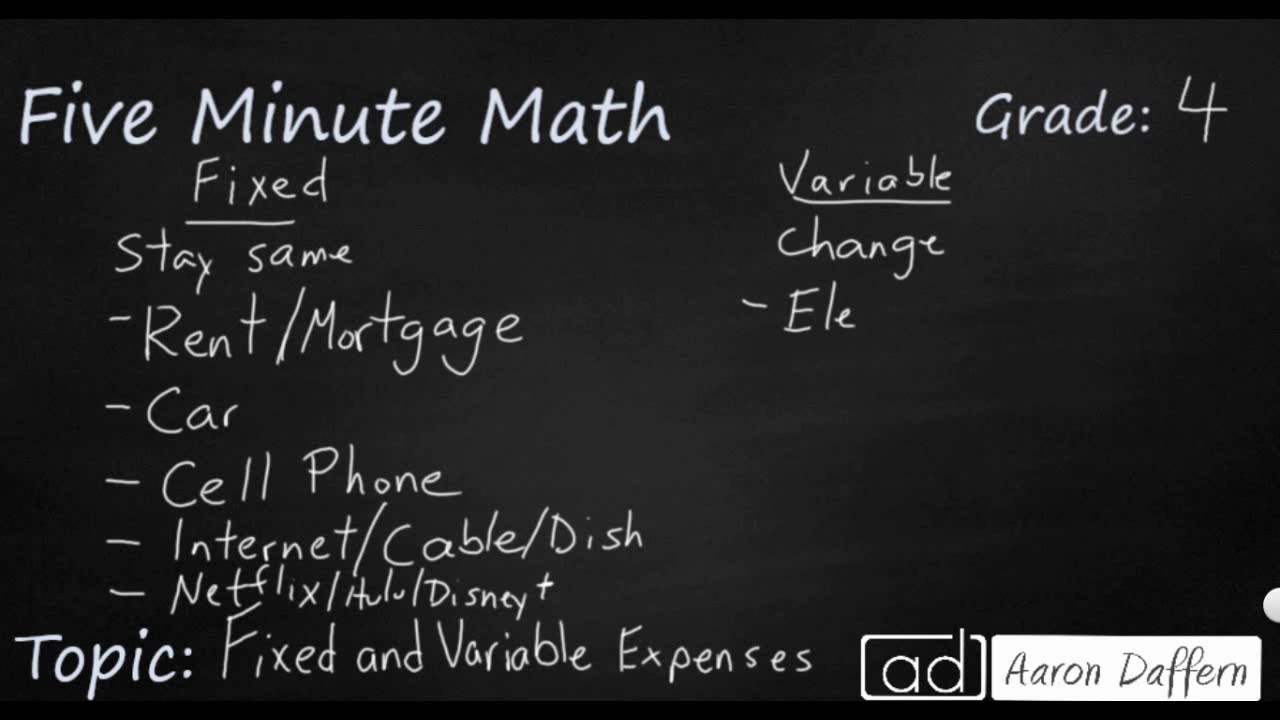 Five Minute Math
Grade: 4
Fixed
Stay same
- Rent/Mortgage
- Car
- Cell Phone
- Internet/Cable/Dish
- Netflix/Hulu/Disney+
Variable
Change
- Ele
Topic: Fixed and Variable Expenses
ad Aaron Daffern